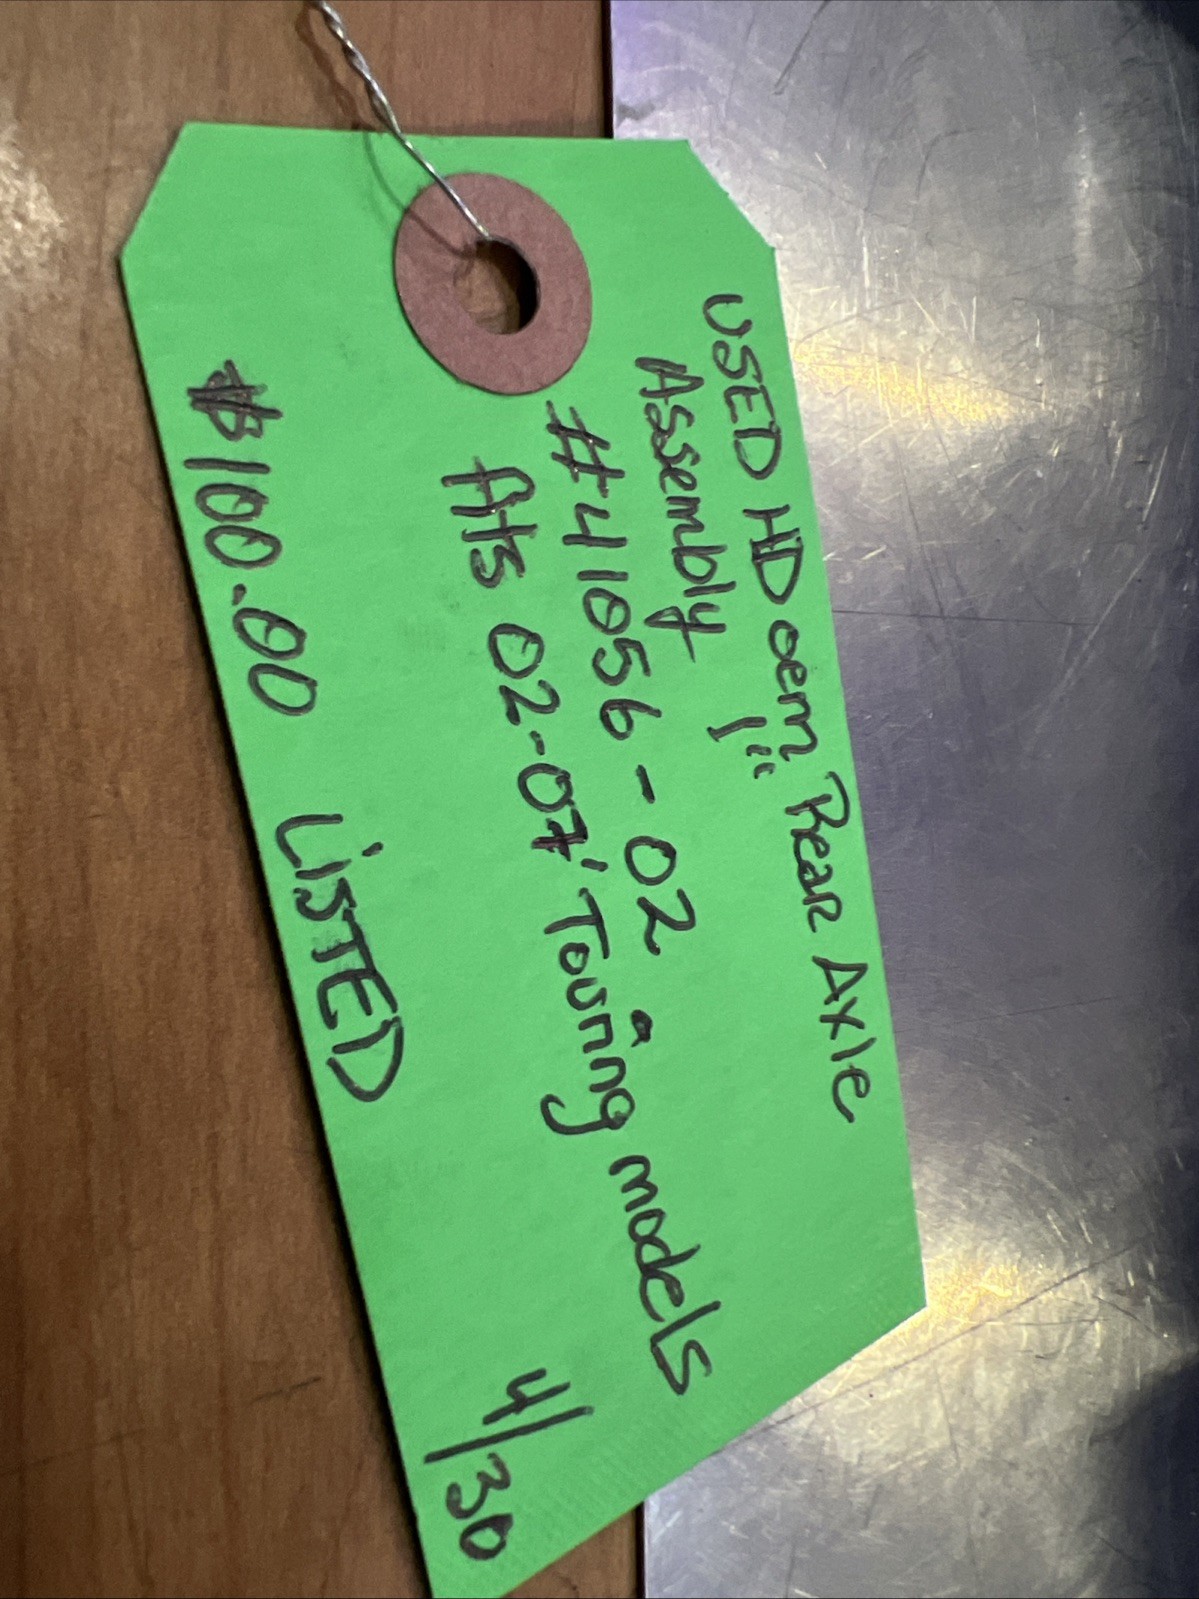 USED HD oem Rear Axle
Assembly 1"
#41056-02
fits 02-07' Touring models
$100.00 LiSTED 4/30